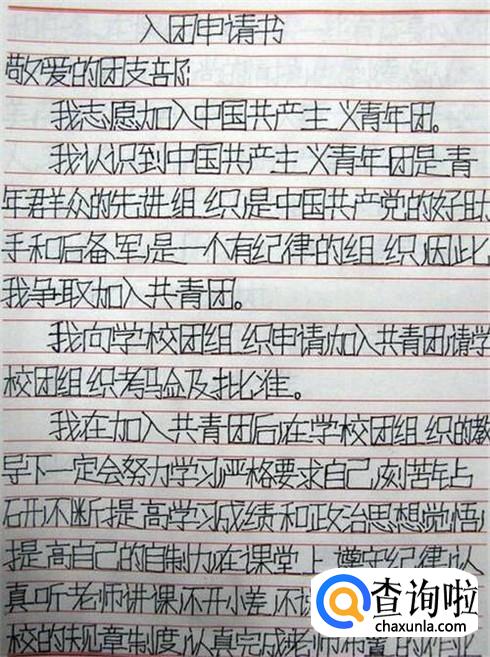 入团申请书
敬爱的团支部:
我志愿加入中国共产主义青年团。
我认识到中国共产主义青年团是青
年群众的先进组织,是中国共产党的好助
手和后备军,是一个有纪律的组织,因此,
我争取加入共青团。
我向学校团组织申请,加入共青团,请学
校团组织考验及批准。
我在加入共青团后,在学校团组织的教
导下一定会努力学习,严格要求自己,刻苦钻
研,不断提高学习成绩和政治思想觉悟,
提高自己的自制力,在课堂上,遵守纪律,认
真听老师讲课,不开小差,不
校的规章制度,认真完成老师布置的作业
查询啦
chaxunla.com